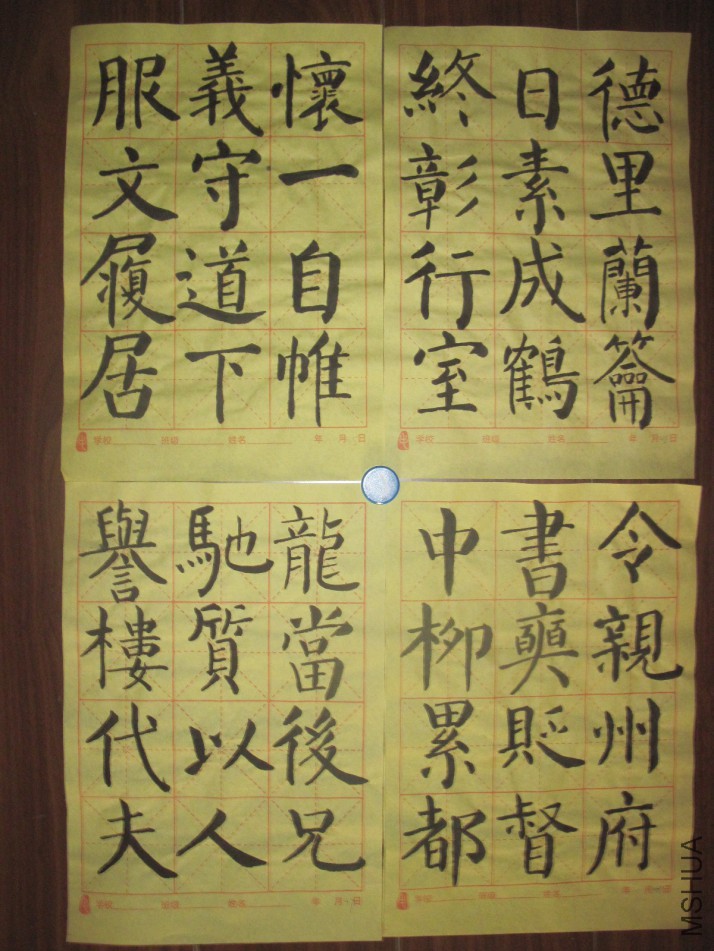 德里蘭籥
日素成鶴
終彰行室
学校 班级 姓名 年 月 日
懷一自帷
義守道下
服文履居
学校 班级 姓名 年 月 日
令親州府
書奭貶督
中柳累都
学校 班级 姓名 年 月 日
龍當後兄
馳質以人
譽樓代夫
学校 班级 姓名 年 月 日
MSHUA